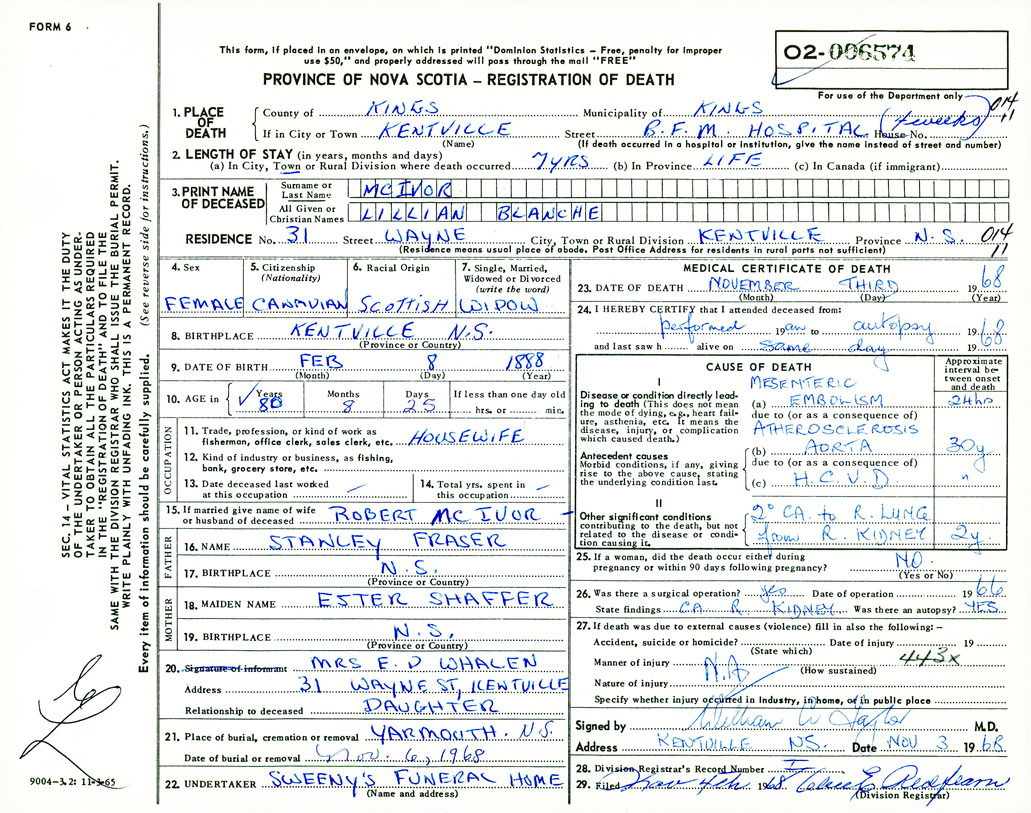 FORM 6
This form, if placed in an envelope, on which is printed "Dominion Statistics – Free, penalty for improper
use $50," and properly addressed will pass through the mail "FREE"
O2-006574
For use of the Department only
PROVINCE OF NOVA SCOTIA – REGISTRATION OF DEATH
014
11
1. PLACE OF DEATH County of KINGS Municipality of KINGS
If in City or Town KENTVILLE Street B.F.M. HOSPITAL (4 weeks) House No.
(Name) (If death occurred in a hospital or institution, give the name instead of street and number)
2. LENGTH OF STAY (in years, months and days)
(a) In City, Town or Rural Division where death occurred 7 YRS (b) In Province LIFE (c) In Canada (if immigrant)
3. PRINT NAME OF DECEASED Surname or Last Name MC IVOR
All Given or Christian Names LILLIAN BLANCHE
RESIDENCE No. 31 Street WAYNE City, Town or Rural Division KENTVILLE Province N.S. 014
(Residence means usual place of abode. Post Office Address for residents in rural parts not sufficient) 11
4. Sex FEMALE
5. Citizenship (Nationality) CANADIAN
6. Racial Origin SCOTTISH
7. Single, Married, Widowed or Divorced (write the word) WIDOW
8. BIRTHPLACE KENTVILLE N.S.
(Province or Country)
9. DATE OF BIRTH FEB 8 1888
(Month) (Day) (Year)
10. AGE in Years 80 Months 8 Days 25 If less than one day old
hrs. or min.
OCCUPATION
11. Trade, profession, or kind of work as
fisherman, office clerk, sales clerk, etc. HOUSEWIFE
12. Kind of industry or business, as fishing,
bank, grocery store, etc.
13. Date deceased last worked
at this occupation
14. Total yrs. spent in
this occupation
15. If married give name of wife
or husband of deceased ROBERT MC IVOR
FATHER
16. NAME STANLEY FRASER
17. BIRTHPLACE N.S.
(Province or Country)
MOTHER
18. MAIDEN NAME ESTER SHAFFER
19. BIRTHPLACE N.S.
(Province or Country)
20. Signature of informant MRS E. D WHALEN
Address 31 WAYNE ST, KENTVILLE
Relationship to deceased DAUGHTER
21. Place of burial, cremation or removal YARMOUTH. N.S.
Date of burial or removal Nov. 6, 1968
22. UNDERTAKER SWEENY'S FUNERAL HOME
(Name and address)
MEDICAL CERTIFICATE OF DEATH
23. DATE OF DEATH NOVEMBER THIRD 1968
(Month) (Day) (Year)
24. I HEREBY CERTIFY that I attended deceased from:
performed 19 an to autopsy 1968
and last saw h alive on same day 1968
CAUSE OF DEATH
Approximate interval between onset and death
I
Disease or condition directly leading to death (This does not mean the mode of dying, e.g., heart failure, asthenia, etc. It means the disease, injury, or complication which caused death.)
MESENTERIC
(a) EMBOLISM 24 hrs
due to (or as a consequence of)
ATHEROSCLEROSIS
(b) AORTA 30y
Antecedent causes
Morbid conditions, if any, giving rise to the above cause, stating the underlying condition last.
due to (or as a consequence of)
(c) H.C.V.D. "
II
Other significant conditions contributing to the death, but not related to the disease or condition causing it.
2° CA. to R. LUNG
from R. KIDNEY 2y.
25. If a woman, did the death occur either during
pregnancy or within 90 days following pregnancy? NO.
(Yes or No)
26. Was there a surgical operation? yes Date of operation 1966
State findings CA R. KIDNEY Was there an autopsy? YES
27. If death was due to external causes (violence) fill in also the following: –
Accident, suicide or homicide? Date of injury 19
(State which) 443x
Manner of injury N.A (How sustained)
Nature of injury
Specify whether injury occurred in industry, in home, or in public place
Signed by William W Taylor M.D.
Address KENTVILLE NS. Date NOV 3 1968
28. Division Registrar's Record Number
29. Filed Nov 4th 1968
(Division Registrar)
SEC. 14 – VITAL STATISTICS ACT MAKES IT THE DUTY
OF THE UNDERTAKER OR PERSON ACTING AS UNDER-
TAKER TO OBTAIN ALL THE PARTICULARS REQUIRED
IN THE "REGISTRATION OF DEATH" AND TO FILE THE
SAME WITH THE DIVISION REGISTRAR WHO SHALL ISSUE THE BURIAL PERMIT.
WRITE PLAINLY WITH UNFADING INK. THIS IS A PERMANENT RECORD.
Every item of information should be carefully supplied. (See reverse side for instructions.)
9004-3.2: 11-3-65